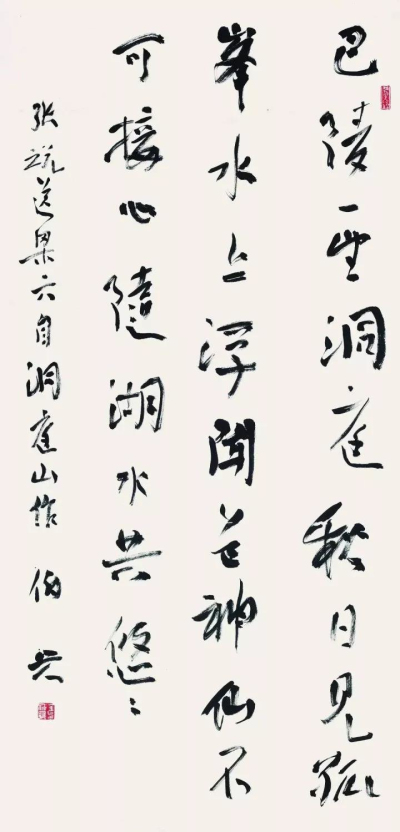 巴陵一望洞庭秋日見孤
峯水上浮聞道神仙不
可接心隨湖水共悠〻
張説送梁六自洞庭山作